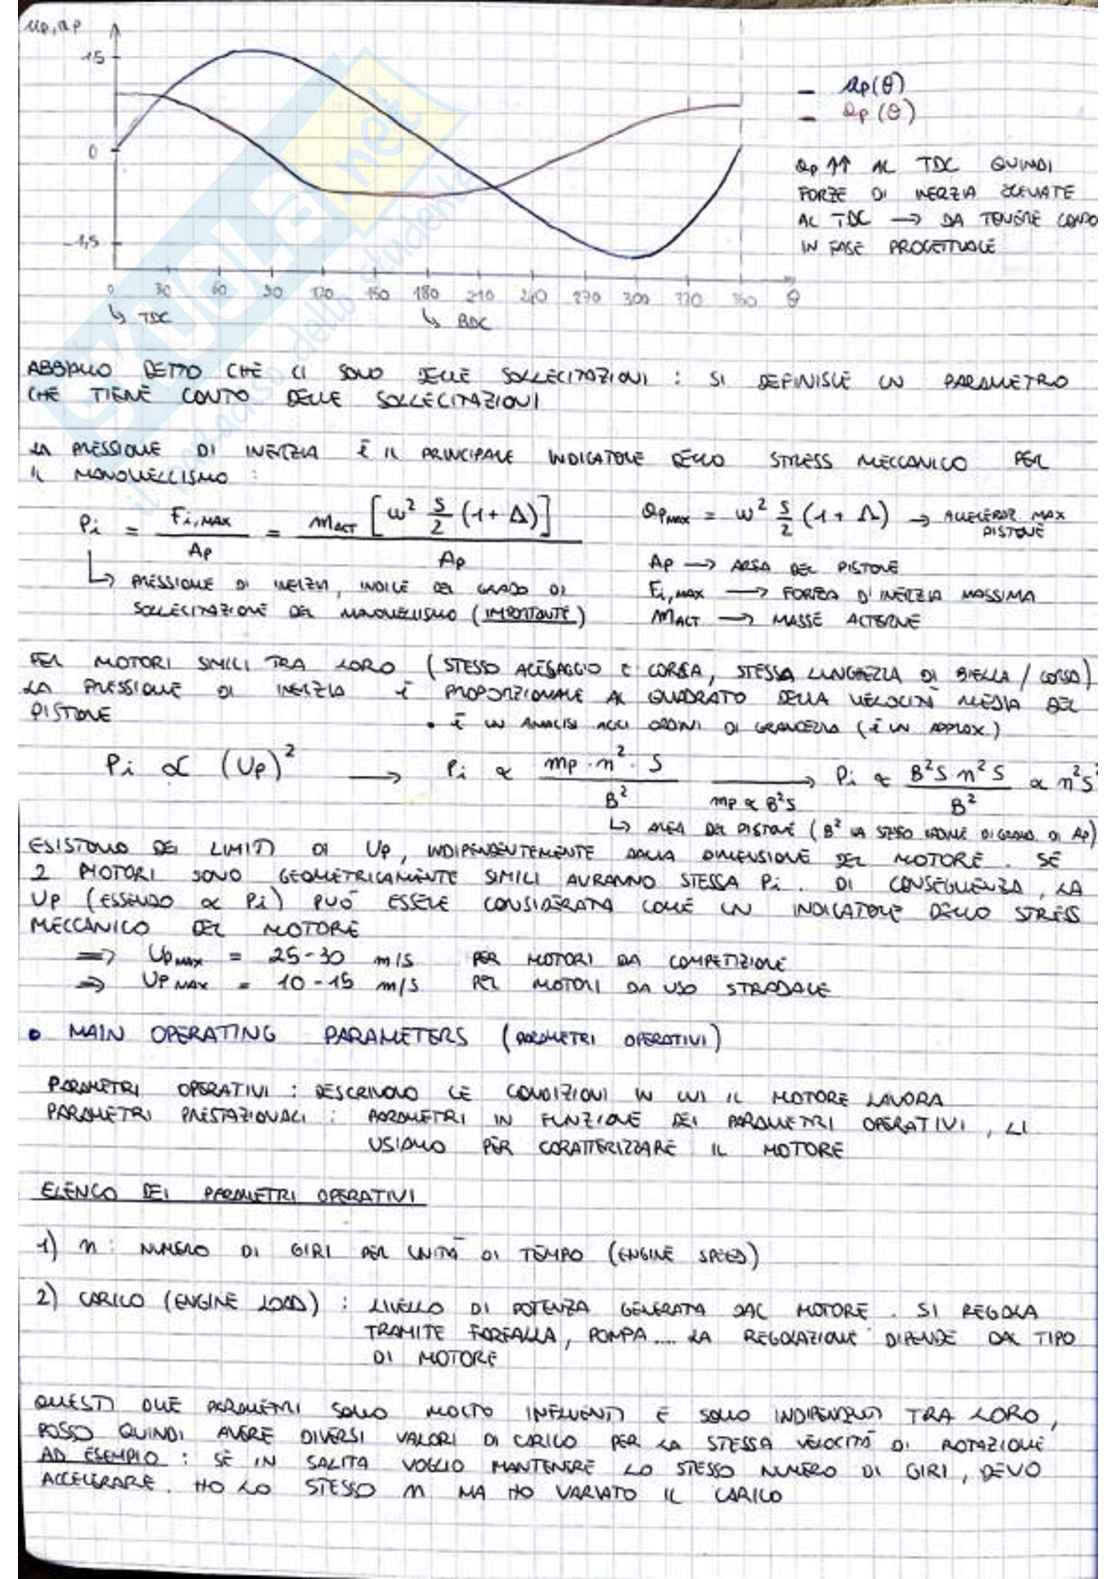 up, ap
1,5
0
-1,5
0 30 60 90 120 150 180 210 240 270 300 330 360 θ
↳ TDC ↳ BDC
— up(θ)
— ap(θ)
ap ↑↑ AL TDC QUINDI
FORZE DI INERZIA ELEVATE
AL TDC → DA TENERE CONTO
IN FASE PROGETTUALE
ABBIAMO DETTO CHE CI SONO DELLE SOLLECITAZIONI : SI DEFINISCE UN PARAMETRO
CHE TIENE CONTO DELLE SOLLECITAZIONI
LA PRESSIONE DI INERZIA È IL PRINCIPALE INDICATORE DELLO STRESS MECCANICO PER
IL MANOVELLISMO :
Pi = Fi,MAX / AP = MACT [ω² S/2 (1+Λ)] / AP
aPMAX = ω² S/2 (1+Λ) → ACCELERAZ. MAX PISTONE
↳ PRESSIONE DI INERZIA, INDICE DEL GRADO DI
SOLLECITAZIONE DEL MANOVELLISMO (IMPORTANTE)
AP → AREA DEL PISTONE
Fi,MAX → FORZA D'INERZIA MASSIMA
MACT → MASSE ALTERNE
PER MOTORI SIMILI TRA LORO (STESSO ALESAGGIO E CORSA, STESSA LUNGHEZZA DI BIELLA / CORSA)
LA PRESSIONE DI INERZIA È PROPORZIONALE AL QUADRATO DELLA VELOCITÀ MEDIA DEL
PISTONE
• È UN ANALISI AGLI ORDINI DI GRANDEZZA (È UN APPROX)
Pi ∝ (UP)² → Pi ∝ mp · n² · S / B² → mp ∝ B²S Pi ∝ B²S n² S / B² ∝ n²S²
↳ AREA DEL PISTONE (B² HA STESSO ORDINE DI GRAND. DI AP)
ESISTONO DEI LIMITI DI UP, INDIPENDENTEMENTE DALLA DIMENSIONE DEL MOTORE. SE
2 MOTORI SONO GEOMETRICAMENTE SIMILI AVRANNO STESSA Pi. DI CONSEGUENZA, LA
UP (ESSENDO ∝ Pi) PUÒ ESSERE CONSIDERATA COME UN INDICATORE DELLO STRESS
MECCANICO DEL MOTORE
⇒ UPMAX = 25-30 m/s PER MOTORI DA COMPETIZIONE
⇒ UPMAX = 10-15 m/s PER MOTORI DA USO STRADALE
• MAIN OPERATING PARAMETERS (PARAMETRI OPERATIVI)
PARAMETRI OPERATIVI : DESCRIVONO LE CONDIZIONI IN CUI IL MOTORE LAVORA
PARAMETRI PRESTAZIONALI : PARAMETRI IN FUNZIONE DEI PARAMETRI OPERATIVI, LI
USIAMO PER CARATTERIZZARE IL MOTORE
ELENCO DEI PARAMETRI OPERATIVI
1) n : NUMERO DI GIRI PER UNITÀ DI TEMPO (ENGINE SPEED)
2) CARICO (ENGINE LOAD) : LIVELLO DI POTENZA GENERATA DAL MOTORE. SI REGOLA
TRAMITE FARFALLA, POMPA.... LA REGOLAZIONE DIPENDE DAL TIPO
DI MOTORE
QUESTI DUE PARAMETRI SONO MOLTO INFLUENTI E SONO INDIPENDENTI TRA LORO,
POSSO QUINDI AVERE DIVERSI VALORI DI CARICO PER LA STESSA VELOCITÀ DI ROTAZIONE
AD ESEMPIO : SE IN SALITA VOGLIO MANTENERE LO STESSO NUMERO DI GIRI, DEVO
ACCELERARE. HO LO STESSO n MA HO VARIATO IL CARICO